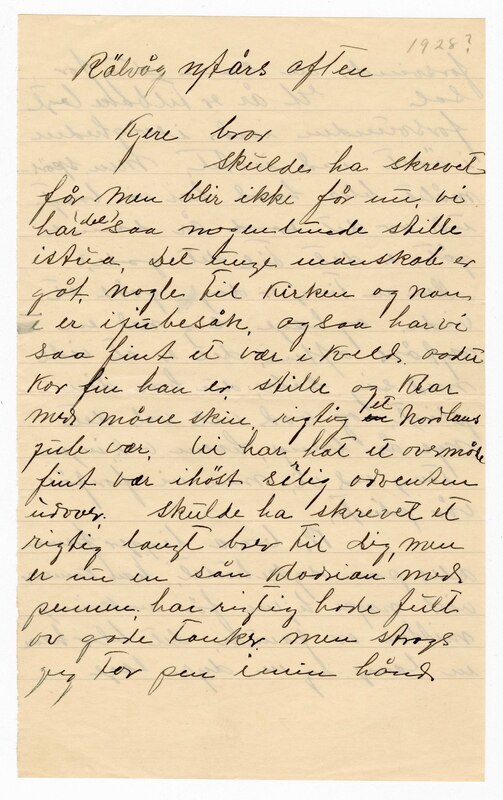 1928?
Rälvåg nyårs aften
Kjere bror
Skulde ha skrevet
før men blir ikke før nu, vi
har det saa nogenlunde stille
istua, Det unge manskab er
gåt, nogle til Kirken og non
er ijulbesåk, og saa har vi
saa fint et vær i kveld.
kor fin han er, stille og Klar
med måneskin, rigtig et Nordlans
jule vær. Vi har hat et overmåde
fint vær ihöst selig adventen
udover. Skulde ha skrevet et
rigtig langt brev til dig, men
er nu en sån Kladrian med
pennen, har rigtig hode fult
av gode Tanker men strags
jeg Tar pen i min hånd